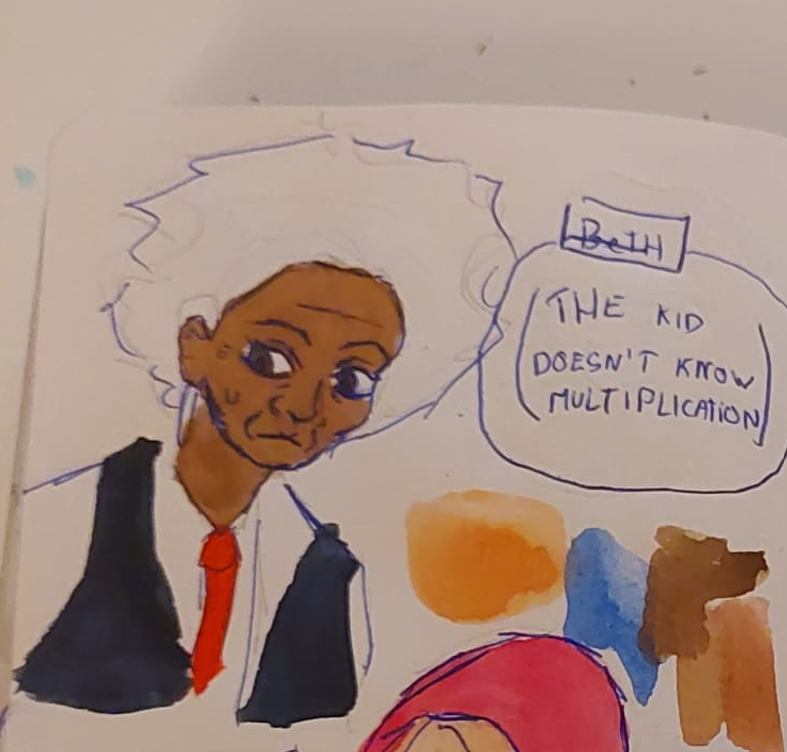 BETH
(THE KID
DOESN'T KNOW
MULTIPLICATION)